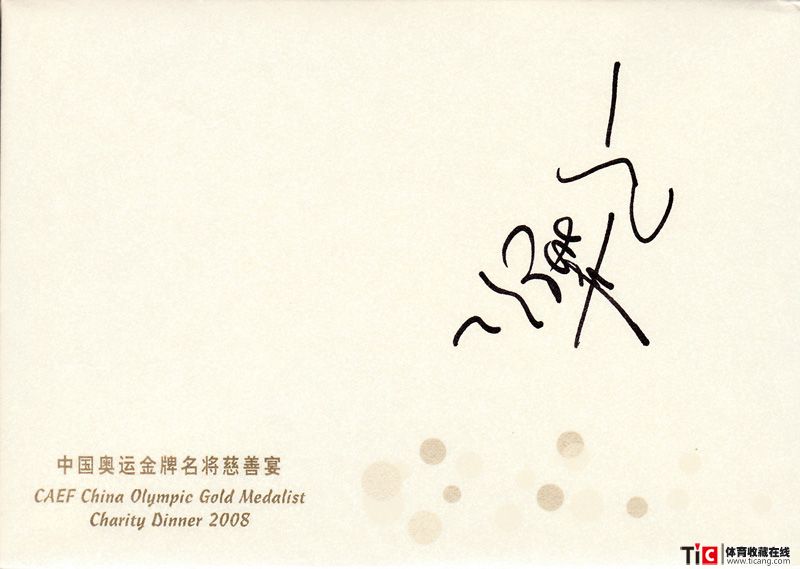 中国奥运金牌名将慈善宴
CAEF China Olympic Gold Medalist
Charity Dinner 2008
TiC 体育收藏在线
www.ticang.com